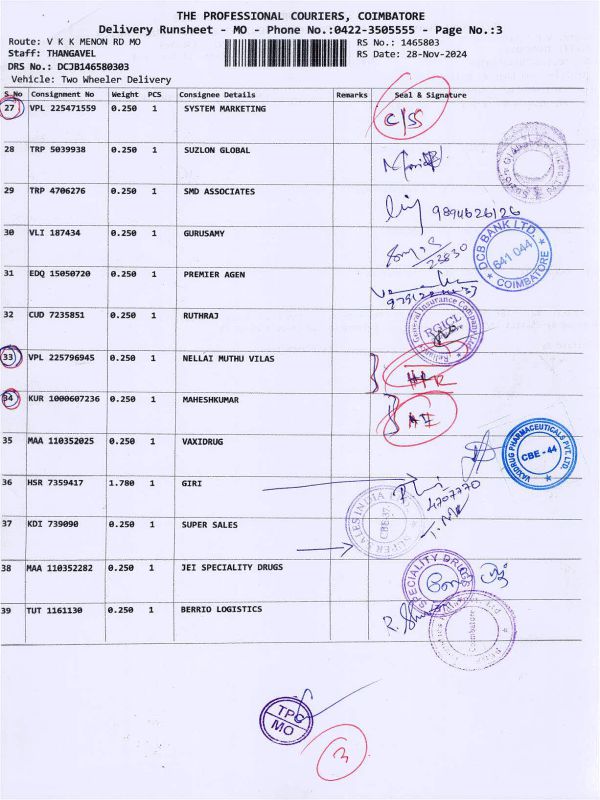 THE PROFESSIONAL COURIERS, COIMBATORE
Delivery Runsheet - MO - Phone No.:0422-3505555 - Page No.:3
Route: V K K MENON RD MO
RS No.: 1465803
Staff: THANGAVEL
RS Date: 28-Nov-2024
DRS No.: DCJB146580303
Vehicle: Two Wheeler Delivery
S No Consignment No Weight PCS Consignee Details Remarks Seal & Signature
27 VPL 225471559 0.250 1 SYSTEM MARKETING C/SS
28 TRP 5039938 0.250 1 SUZLON GLOBAL
29 TRP 4706276 0.250 1 SMD ASSOCIATES 9894626126
30 VLI 187434 0.250 1 GURUSAMY 22830
DCB BANK LTD. 641 044 COIMBATORE
31 EDQ 15050720 0.250 1 PREMIER AGEN
32 CUD 7235851 0.250 1 RUTHRAJ
Reliance General Insurance Company Ltd RGICL
33 VPL 225796945 0.250 1 NELLAI MUTHU VILAS
34 KUR 1000607236 0.250 1 MAHESHKUMAR
35 MAA 110352025 0.250 1 VAXIDRUG
VAXIDRUG PHARMACEUTICALS PVT. LTD. CBE - 44
36 HSR 7359417 1.780 1 GIRI
4707770
37 KDI 739090 0.250 1 SUPER SALES
SUPER SALES INDIA CBE-37
38 MAA 110352282 0.250 1 JEI SPECIALITY DRUGS
SPECIALITY DRUGS
39 TUT 1161130 0.250 1 BERRIO LOGISTICS
Coimbatore
TPC
MO
3